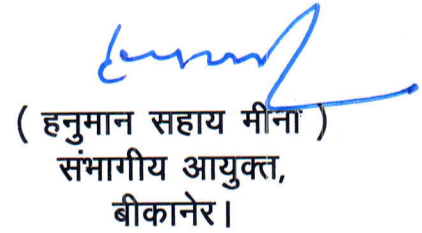 ( हनुमान सहाय मीना )
संभागीय आयुक्त,
बीकानेर।